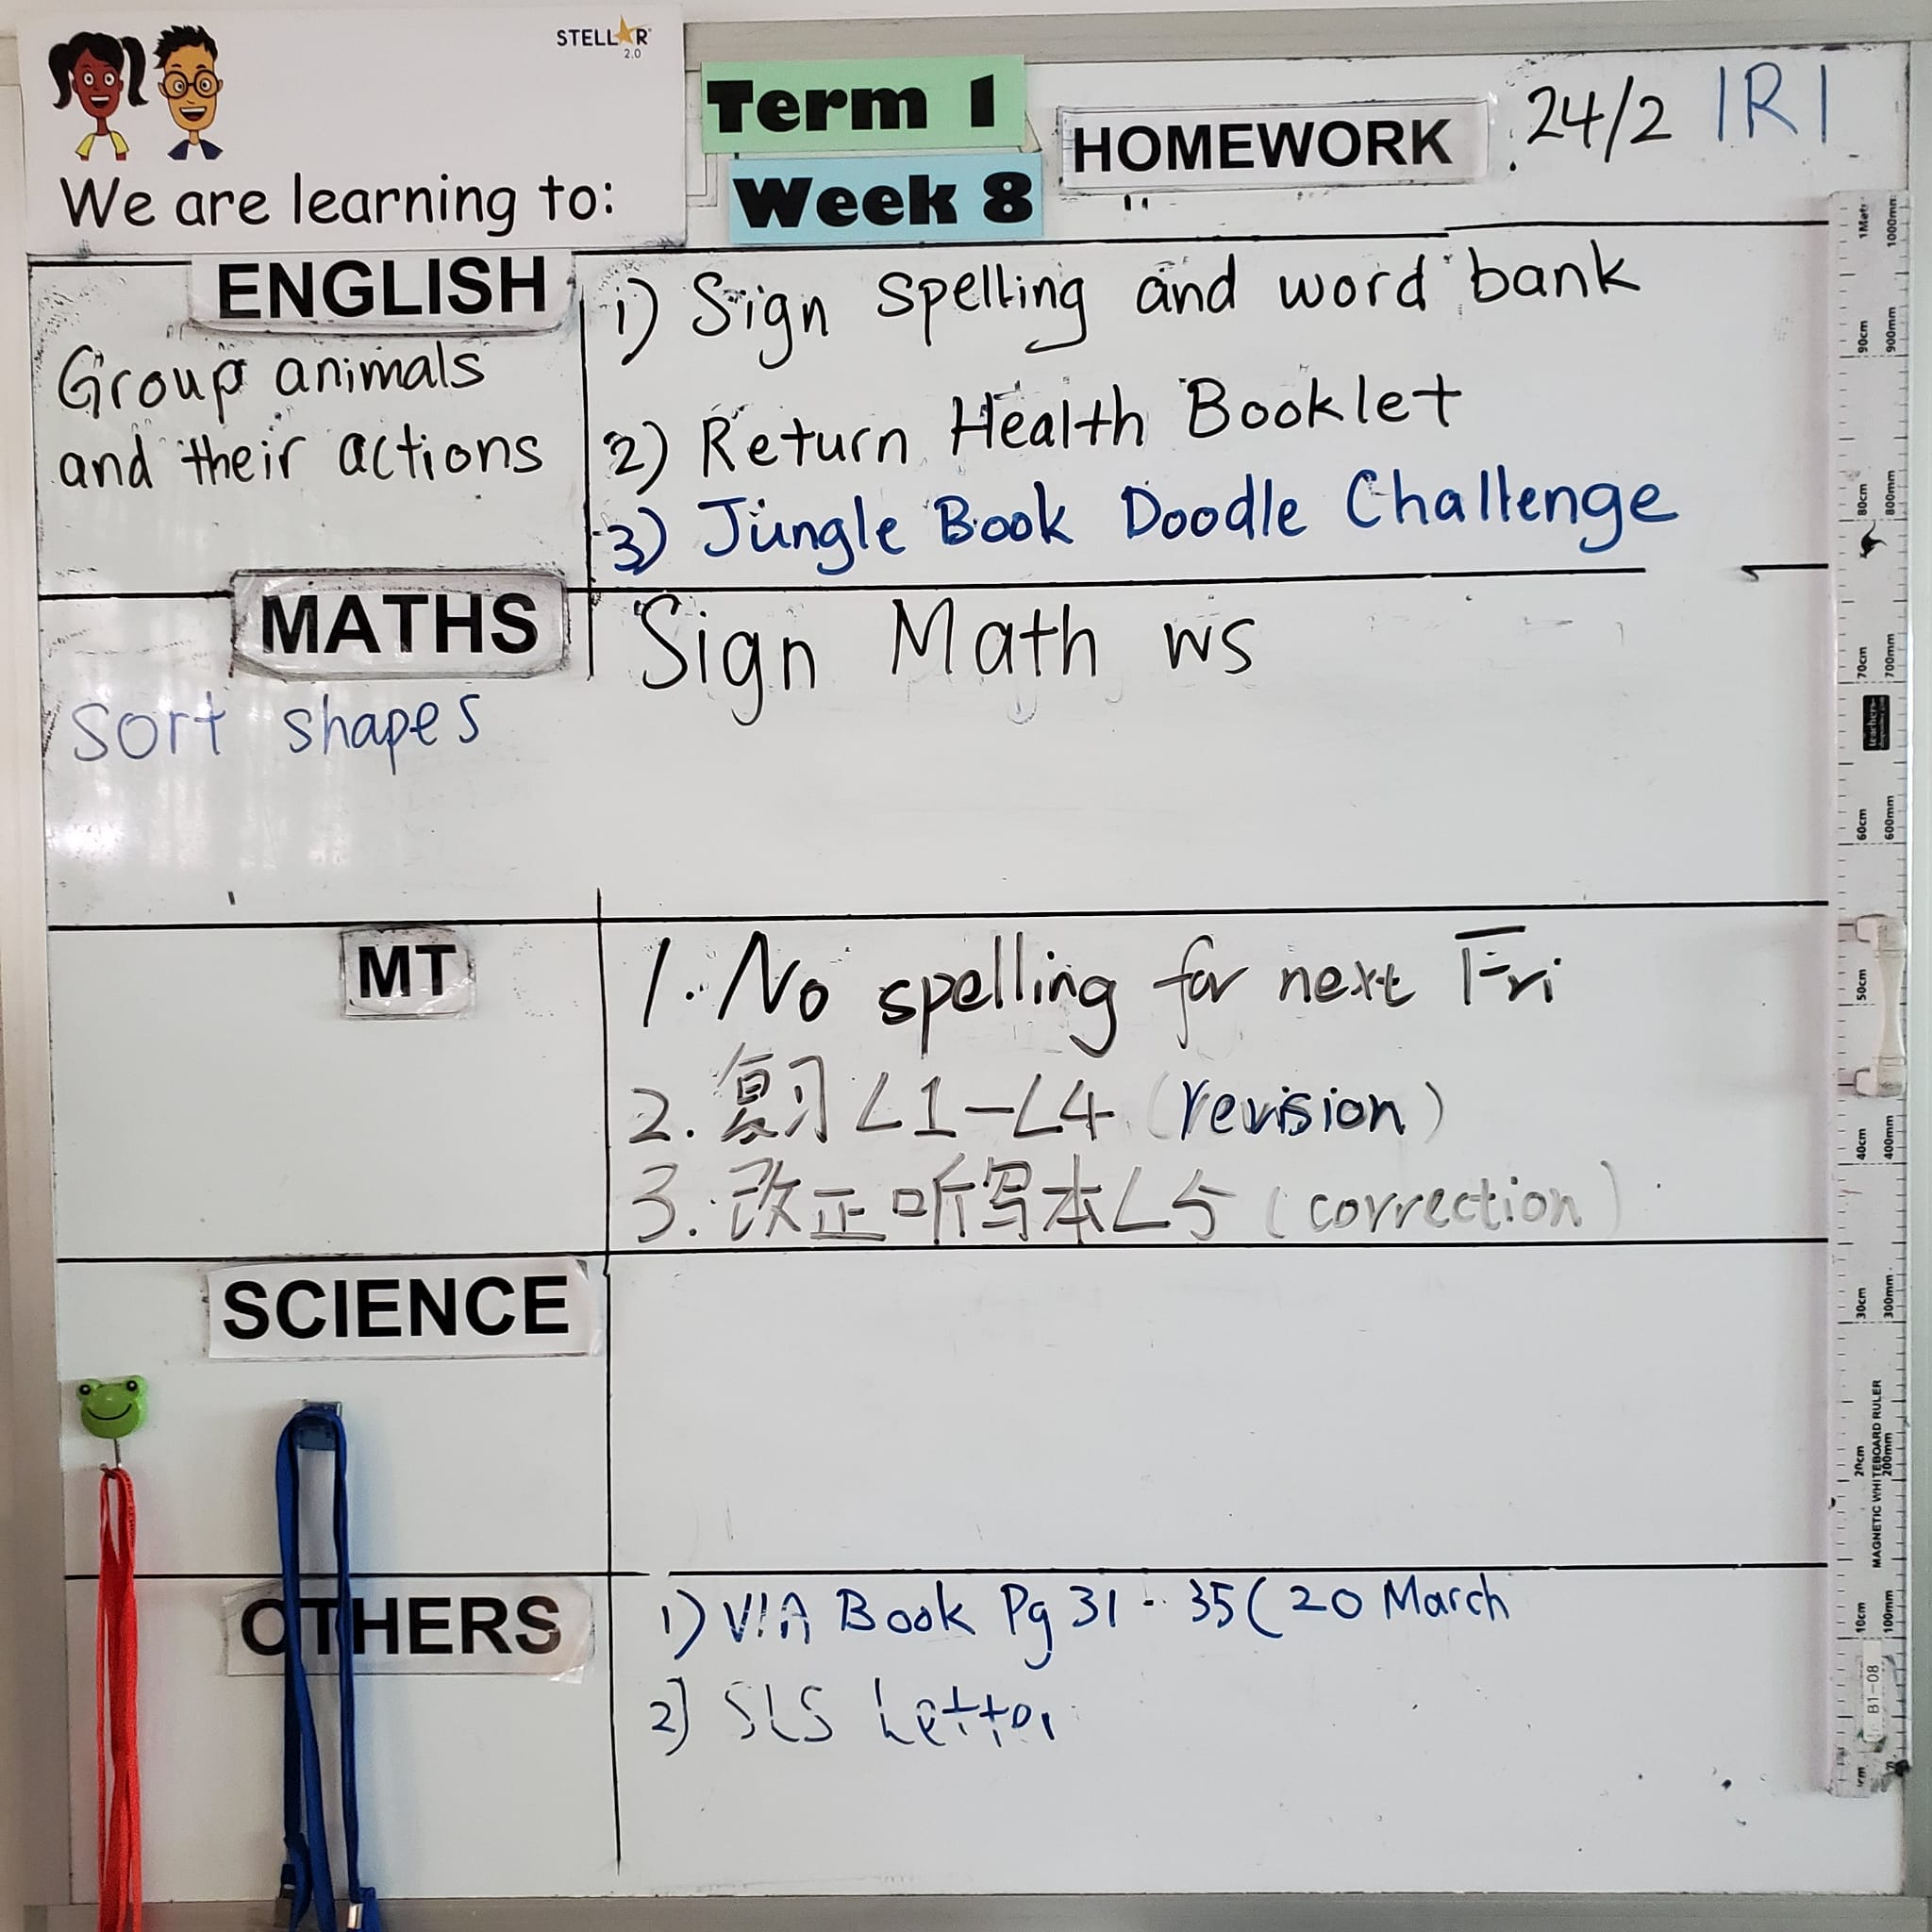 STELLAR 2.0
We are learning to:
Term 1
Week 8
HOMEWORK
24/2 1R1
ENGLISH
Group animals
and their actions
1) Sign spelling and word bank
2) Return Health Booklet
3) Jungle Book Doodle Challenge
MATHS
Sort shapes
Sign Math ws
MT
1. No spelling for next Fri
2. 复习 L1-L4 (revision)
3. 改正听写本L5 (correction)
SCIENCE
OTHERS
1) VIA Book Pg 31 - 35 (20 March
2) SLS Letter
1000mm
90cm 900mm
80cm 800mm
70cm 700mm
60cm 600mm
50cm
40cm 400mm
30cm 300mm
20cm 200mm
MAGNETIC WHITEBOARD RULER
10cm 100mm
B1-08